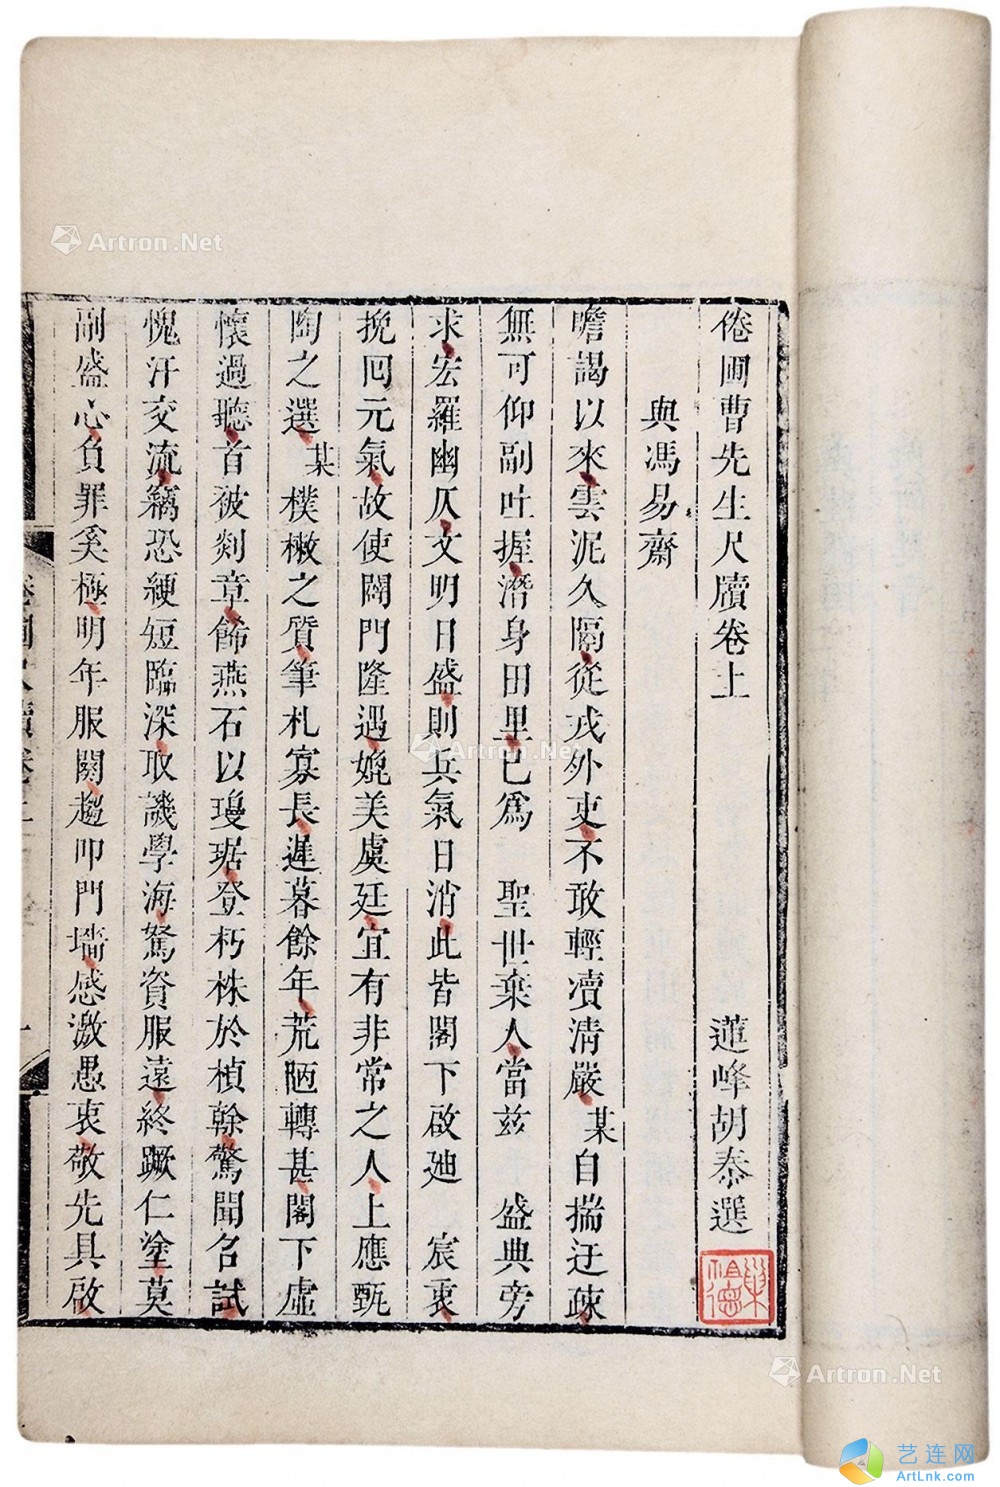 倦圃曹先生尺牘卷上
蓮峰胡泰選
與馮易齋
瞻謁以來雲泥久隔從戎外吏不敢輕凟清嚴某自揣迂疎
無可仰副吐握潛身田里已爲 聖世棄人當茲 盛典旁
求宏羅幽仄文明日盛則兵氣日消此皆閣下啟廸 宸衷
挽囘元氣故使闢門隆遇媲美虞廷宜有非常之人上應甄
陶之選某樸樕之質筆札寡長遲暮餘年荒陋轉甚閣下虛
懷過聽首被剡章飾燕石以瓊琚登朽株於楨榦驚聞名試
愧汗交流竊恐綆短臨深取譏學海駑資服遠終蹶仁塗莫
副盛心負罪奚極明年服闋趨叩門墻感激愚衷敬先具啟
Artron.Net
Artron.Net
Artron.Net
Artron.Net
Artron.Net
艺连网
ArtLnk.com